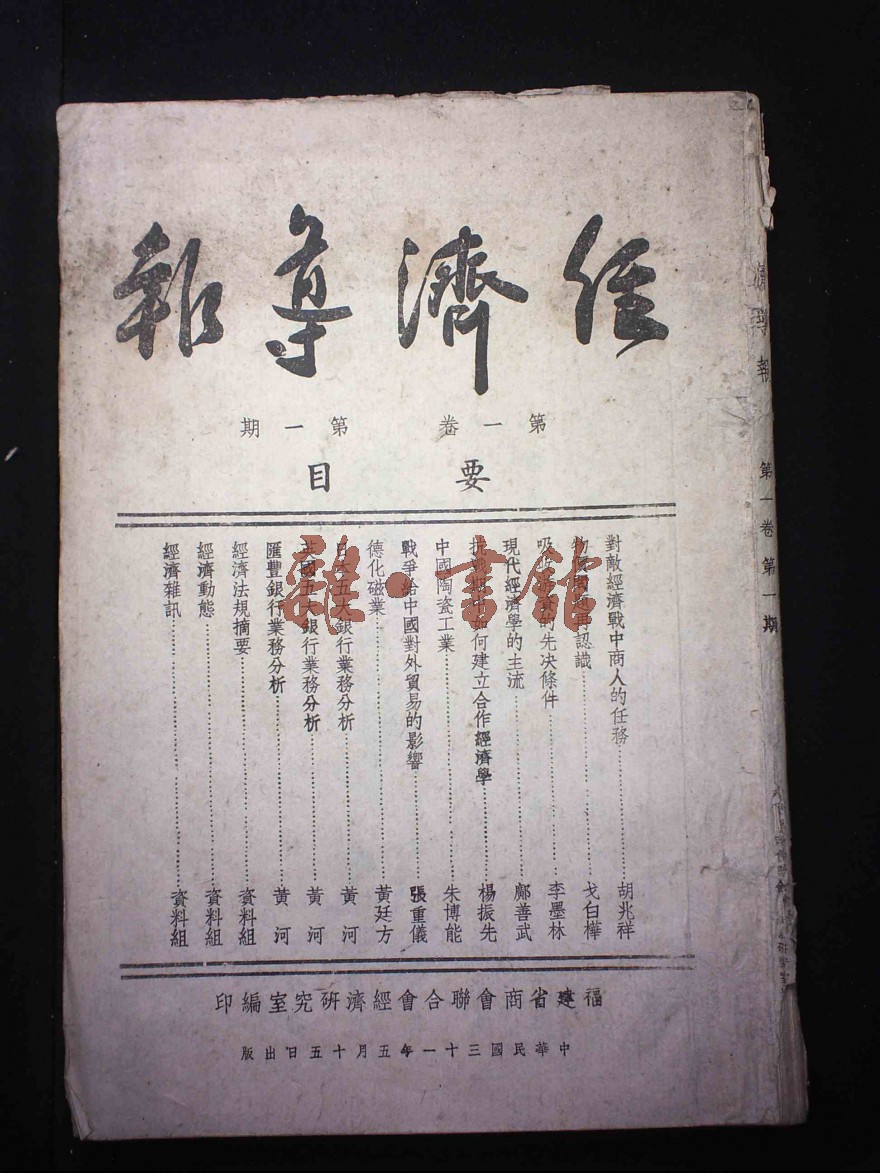 經濟導報
第一卷 第一期
要目
對敵經濟戰中商人的任務……胡兆祥
物價問題再認識……戈白樺
吸收游資的先决條件……李墨林
現代經濟學的主流……鄺善武
抗戰期中如何建立合作經濟學……楊振先
中國陶瓷工業……朱博能
戰爭給中國對外貿易的影響……張重儀
德化磁業……黃廷方
日本五大銀行業務分析……黃河
英國五大銀行業務分析……黃河
匯豐銀行業務分析……黃河
經濟法規摘要……資料組
經濟動態……資料組
經濟雜訊……資料組
福建省商會聯合會經濟研究室編印
中華民國三十一年五月十五日出版
濟導報 第一卷 第一期
雜·書館